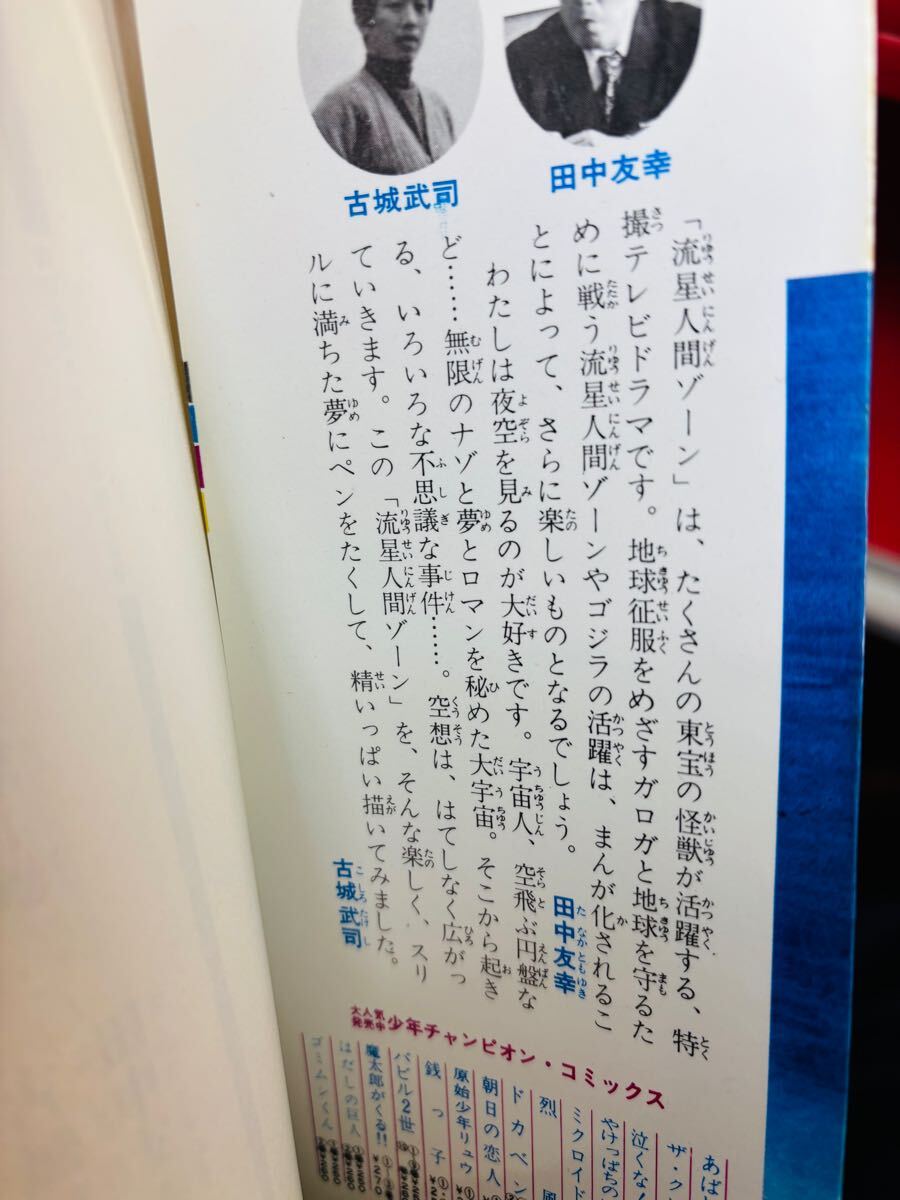 田中友幸
古城武司
「流星人間ゾーン」は、たくさんの東宝の怪獣が活躍する、特
撮テレビドラマです。地球征服をめざすガロガと地球を守るた
めに戦う流星人間ゾーンやゴジラの活躍は、まんが化されるこ
とによって、さらに楽しいものとなるでしょう。
田中友幸
わたしは夜空を見るのが大好きです。宇宙人、空飛ぶ円盤な
ど……無限のナゾと夢とロマンを秘めた大宇宙。そこから起き
る、いろいろな不思議な事件……。空想は、はてしなく広がっ
ていきます。この「流星人間ゾーン」を、そんな楽しく、スリ
ルに満ちた夢にペンをたくして、精いっぱい描いてみました。
古城武司
大人気発売中 少年チャンピオン・コミックス
あば
ザ・ク
泣くな!
やけっぱちの
ミクロイド
烈風
ドカベン
朝日の恋人
原始少年リュウ
銭っ子
バビル2世
魔太郎がくる!!
はだしの巨人
ゴミムシくん